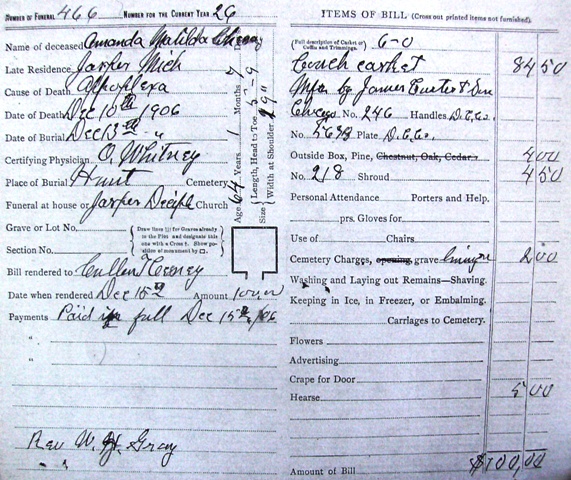 NUMBER OF FUNERAL 466 NUMBER FOR THE CURRENT YEAR 26
Name of deceased Amanda Matilda
Late Residence Jasper Mich
Cause of Death
Date of Death Dec 10th 1906
Date of Burial Dec 13th "
Certifying Physician O. Whitney
Place of Burial Hunt Cemetery
Funeral at house or Jasper Church
Grave or Lot No.
Section No.
Draw lines for Graves already in the Plot and designate this one with a Cross †. Show position of monument by □.
Bill rendered to Cullen
Date when rendered Dec 15th Amount 100.00
Payments Paid in full Dec 15th, 06
"
"
Rev W. H. Gray
"
Age 64 Years 1 Months 7
Size Length, Head to Toe 5-9
Width at Shoulder 19"
ITEMS OF BILL (Cross out printed items not furnished).
(Full description of Casket or Coffin and Trimmings. 6-0
Couch casket 84 50
Mfg by James & Son
No. 246 Handles
No. Plate
Outside Box, Pine, Chestnut, Oak, Cedar 4 00
No. 218 Shroud 4 50
Personal Attendance Porters and Help.
prs. Gloves for
Use of Chairs
Cemetery Charges, opening grave lining 2 00
Washing and Laying out Remains—Shaving.
Keeping in Ice, in Freezer, or Embalming.
Carriages to Cemetery.
Flowers
Advertising
Crape for Door
Hearse 5 00
Amount of Bill $100,00